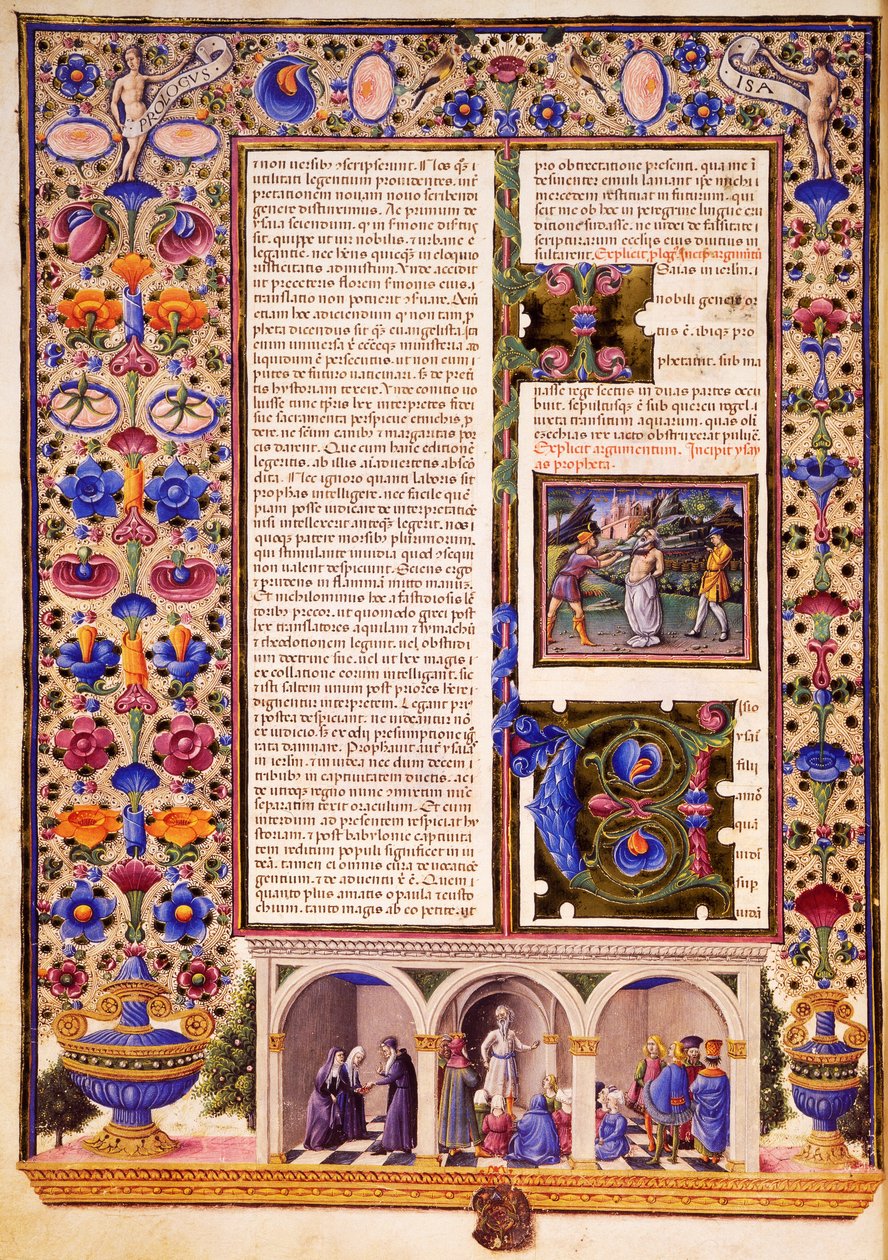 PROLOGVS
ISA
⁊ non uersibꝰ ↄscripserunt. Nos qͦꝫ
utilitati legentum prouidentes. int̃
pretationem nouam nouo scribendi
genere distinximus. Ac primum de
ysaia sciendum. ꝙ in sermone
sit. quippe ut uir nobilis. ⁊ urbanẽ
elegantie. nec ħens quicꝙ̃ in eloquio
rusticitatis admistum. Vnde accidit
ut pre ceteris florem sermonis eius.
translatio non potuerit ↄseruare. Dein
etiam hoc adiciendum ꝙ non tam p̃
pheta dicendus sit qͣꝫ euangelista. ita
enim uniuersa x̃ ecc̃eqꝫ ministeria ad
liquidum ẽ persecutus. ut non eum
putes de futuro uaticinari. sꝫ de preti
tis hystoriam texere. Vnde conitio no
luisse tunc tp̃ris lxx interpretes fidei
sue sacramenta perspicue etnichis p̃
dere. ne sc̃um canibꝰ ⁊ margaritas por
cis darent. Que cum hanc editionem
legeritis. ab illis aĩaduertetis absco
dita. Nec ignoro quanti laboris sit
prophas intelligere. nec facile quẽ
piam posse iudicare de interpretatioẽ
nisi intellexerit anteqꝫ legerit. nos
quoqꝫ patere morsibꝰ plurimorum.
qui stimulante inuidia quod ↄsequi
non ualent despiciunt. Sciens ergo
⁊ prudens in flammã mitto manũ.
Et nichilominus hoc a fastidiosis lec
toribꝰ precor. ut quomodo greci post
lxx translatores aquilam ⁊ symachũ
⁊ theodotionem legunt. uel ob studi
um doctrine sue. uel ut lxx magis
ex collatione eorum intelligant. sic
⁊ isti saltem unum post priores ħre
dignentur interpretem. Legant pri
⁊ postea despiciant. ne uideantur nõ
ex iudicio. sꝫ ex odii presumptione igno
rata damnare. Prophauit aut̃ ysaias
in ierl̃m ⁊ in iudea nec dum decem
tribubꝰ in captiuitatem ductis. ac
de utroqꝫ regno nunc ↄmixtim nuc
separatim texit oraculum. Et cum
interdum ad presentem respiciat hy
storiam. ⁊ post babylonie captiuita
tem reditum populi significet in iu
deã. tamen ei omnis cura de uocatioẽ
gentium. ⁊ de aduentu x̃ ẽ. Quem
quanto plus amatis o paula ⁊ eusto
chium. tanto magis ab eo petite. ut
pro obtrectatione presenti. qua me
desinenter emuli laniant ipse michi
mercedem restituat in futurum. qui
scit me ob hoc in peregrine lingue eru
ditione sudasse. ne iudei de falsitate
scripturarum ecclesiis eius diutius in
sultarent. Explicit
I
Saias in ierl̃m
nobili genere or
tus ẽ. ibiqꝫ pro
phetauit. sub ma
nasse rege sectus in duas partes occu
buit. sepultusqꝫ ẽ sub quercu rogel.
iuxta transitum aquarum. quas oli
ezechias rex iacto obstruxerat puluẽ.
Explicit argumentum. Incipit ysay
as propheta.
V
isio
ysaı̃
filii
amos
quã
uidit
sup̃
iudã